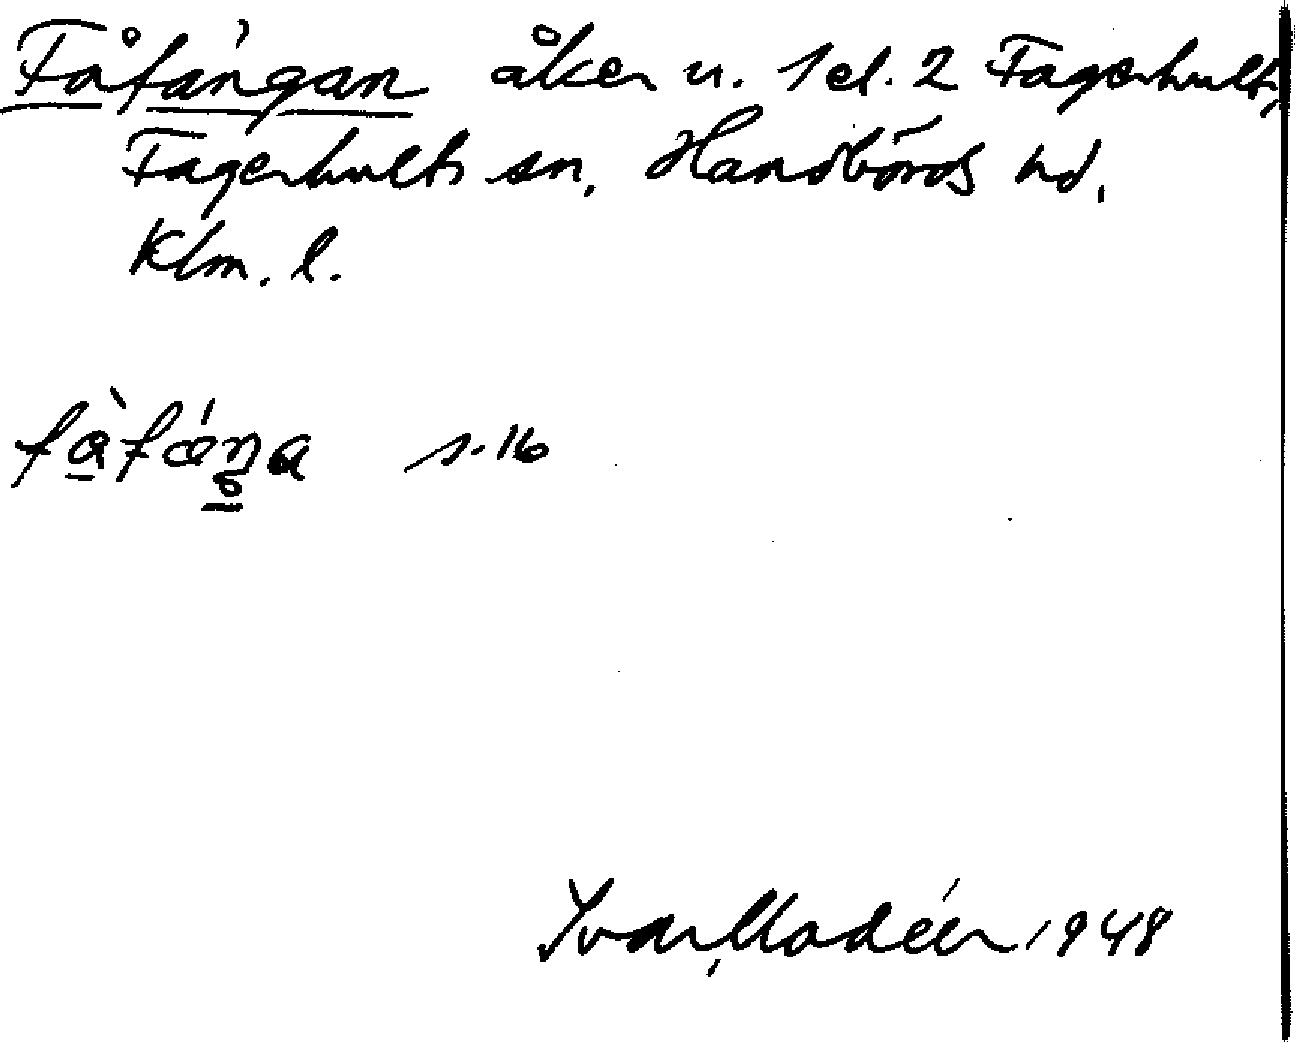 Fåfángan åker u. 1 el. 2 Fagerhult,
Fagerhults sn. Handbörds hd.
Klm. l.
s. 16
Ivar Modéer 1948